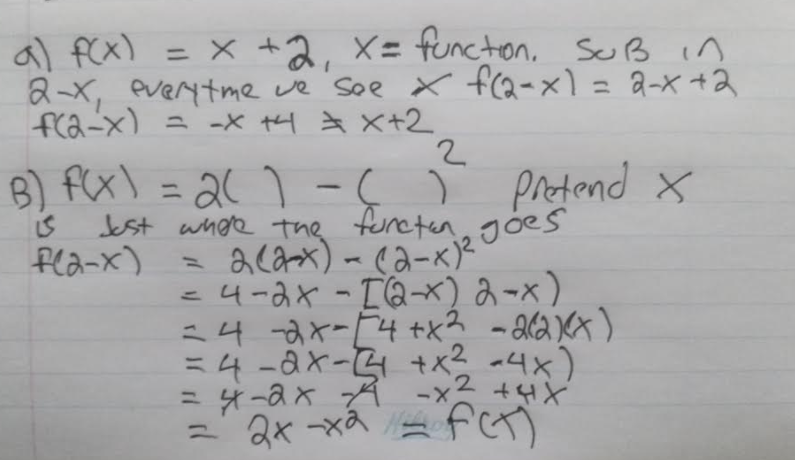 a) f(x) = x + 2, x = function. SUB in
2-x, everytme we see x f(2-x) = 2-x+2
f(2-x) = -x +4 ≠ x+2
B) f(x) = 2( ) - ( )² Pretend x
is Just where the functen goes
f(2-x) = 2(2-x) - (2-x)²
= 4-2x - [(2-x) 2-x)
= 4 -2x-[4 +x² -2(2)(x)
= 4 -2x-[4 +x² -4x)
= 4-2x -4 -x² +4x
= 2x -x² = f(x)